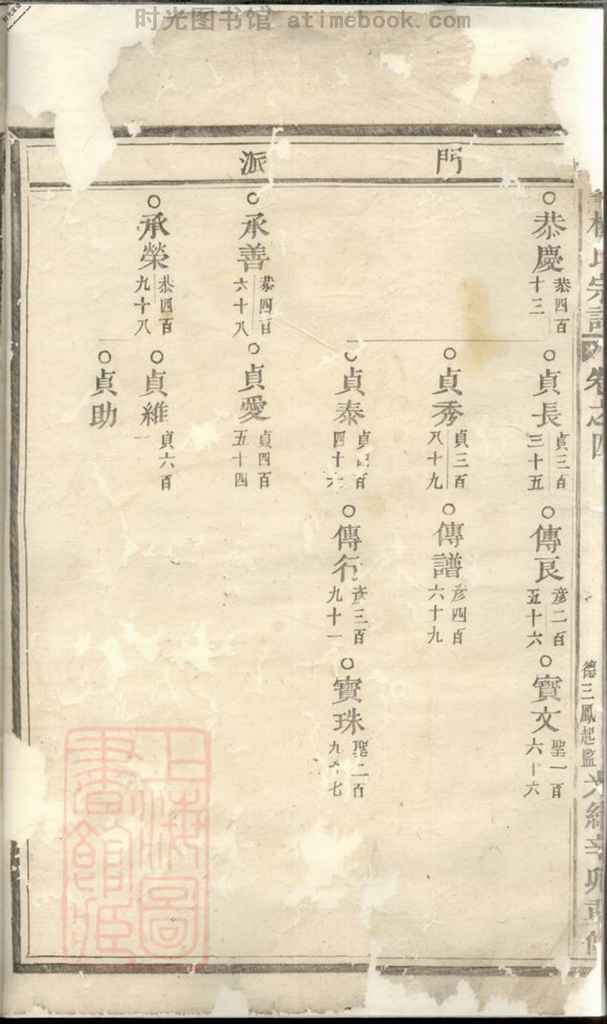 时光图书馆 atimebook.com
門派
楊氏宗譜
卷之四
德三鳳起監
光緒辛卯重修
恭慶 恭四百十三
貞長 貞三百三十五
傳良 彦二百五十六
寳文 聖一百六十六
貞秀 貞三百八十九
傳譜 彦四百六十九
貞泰
傳行 彦三百九十一
寳珠 聖二百
承善 恭四百六十八
貞愛 貞四百五十四
承榮 恭四百九十八
貞維 貞六百一
貞助
上海圖書館藏